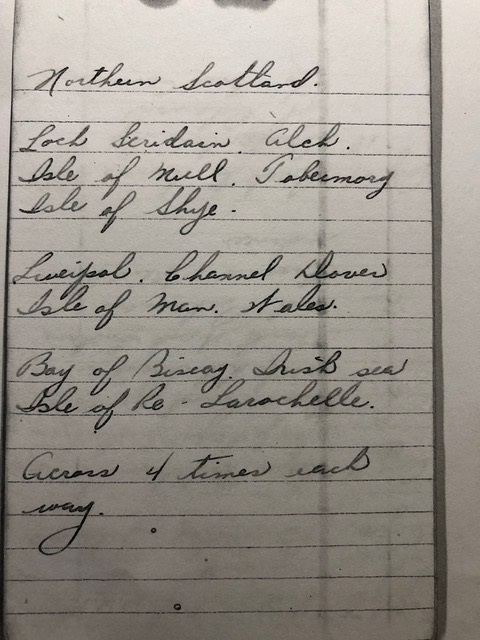 Northern Scotland.
Loch Scridain. Alch.
Isle of Mull. Tobermory
Isle of Skye.
Liverpol. Channel Dover
Isle of Man. Wales.
Bay of Biscay. Irish sea
Isle of Re - Larochelle.
Across 4 times each
way.